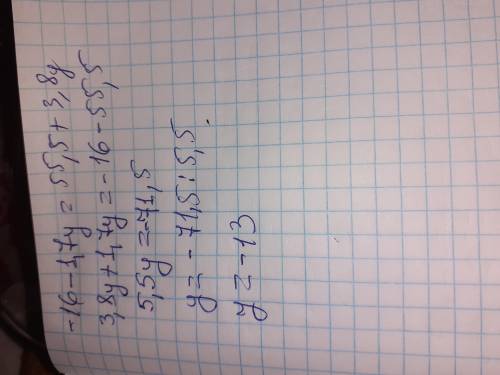 -16-1,7y = 55,5+3,8y
3,8y+1,7y = -16-55,5
5,5y=-71,5
y= -71,5:5,5
y=-13